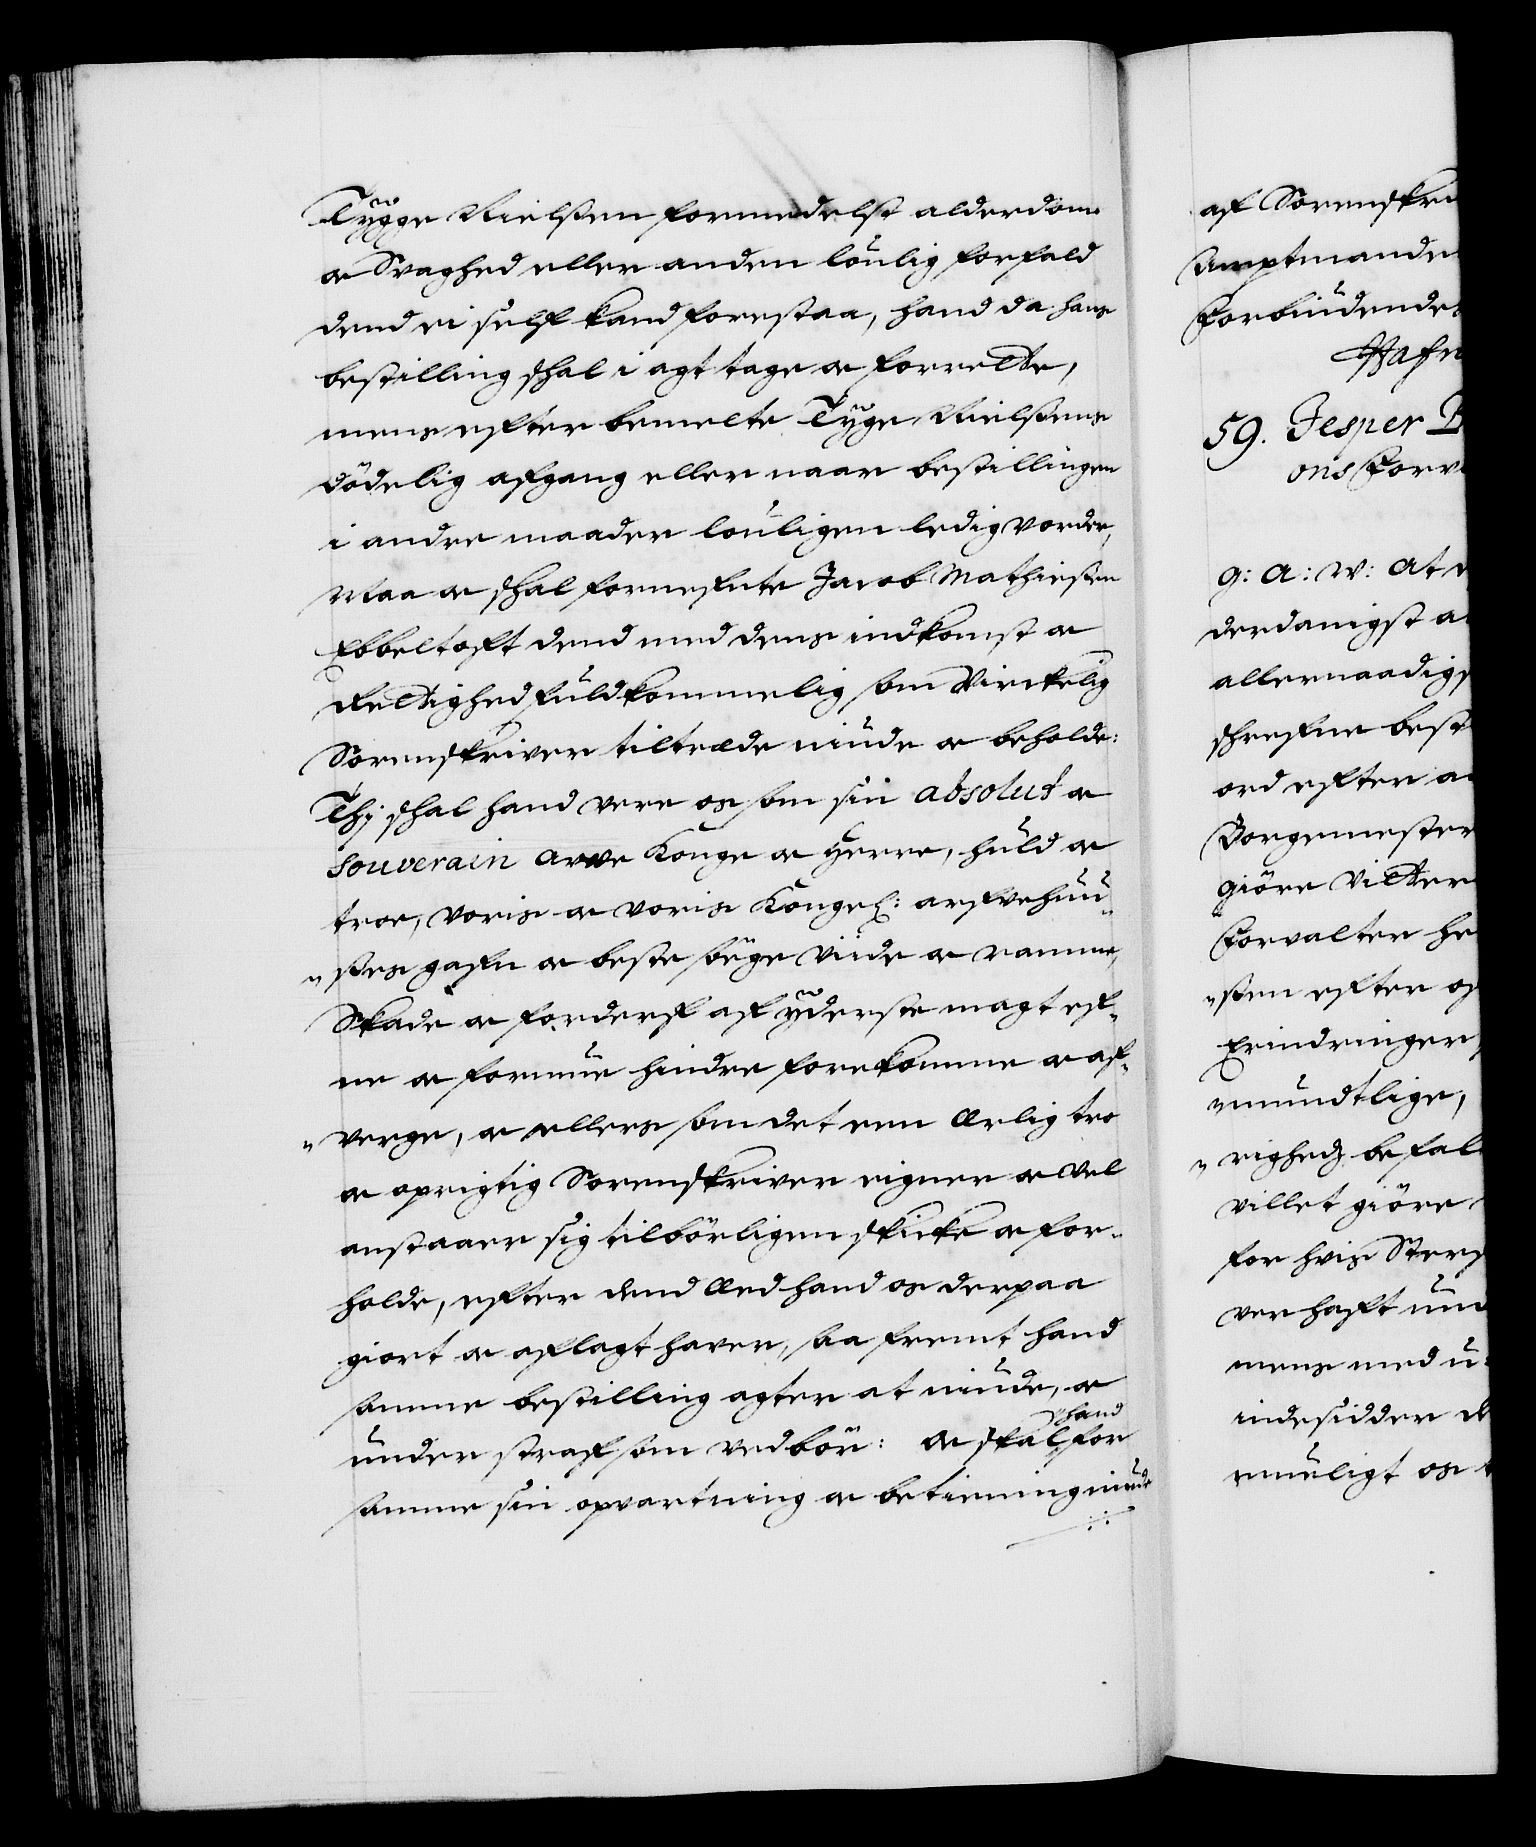 Tygge Nielssen formedelst alderdom
oc Svaghed eller anden loulig forfald
dend ei self kand forestaa, hand da hans
bestilling schal i agt tage oc forrette,
mens efter bemelte Tyge Nielssens
dödelig afgang eller naar bestillingen
i andre maader louligen ledig vorder,
Maa oc schal fornefnte Jacob Mathiessen
Ebbeltoft dend med dens indkomst oc
Rettighed fuldkommelig som Virckelig
Sorenskriver tiltræde niude oc beholde:
Thj schal hand vere os som sin absolut oc
souverain arve Konge oc Herre, huld oc
troe, voris oc voris Kongel: arfvehuu-
"sses gafn oc beste söge viide oc ramme,
Skade oc forderf af yderste magt ef-
ne oc formue hindre forekomme oc af-
"verge, oc ellers som det een Ærlig tro
oc oprigtig Sorenskriver eigner oc vel
anstaaer sig tilbörligen skicke oc for-
holde, efter dend Æed hand os derpaa
giort oc aflagt haver, saa fremt hand
samme bestilling agter at niude, oc
under straf som vedbör: oc skal hand for
samme sin opvartning oc betiening niude
af Sorenskri
Amptmanden
Forbiudendes
Hafn
59. Jesper
ons Forv
g: a: v: at
derdanigst a
allernaadigs
schrefne best
ord efter a
Borgemester
giöre Vitter
Forvalter he
"ssen efter os
Erindringer
"mundtlige,
"righed befal
villet giöre
for hvis Sters
ver haft
mens med u-
indesidder
mueligt os